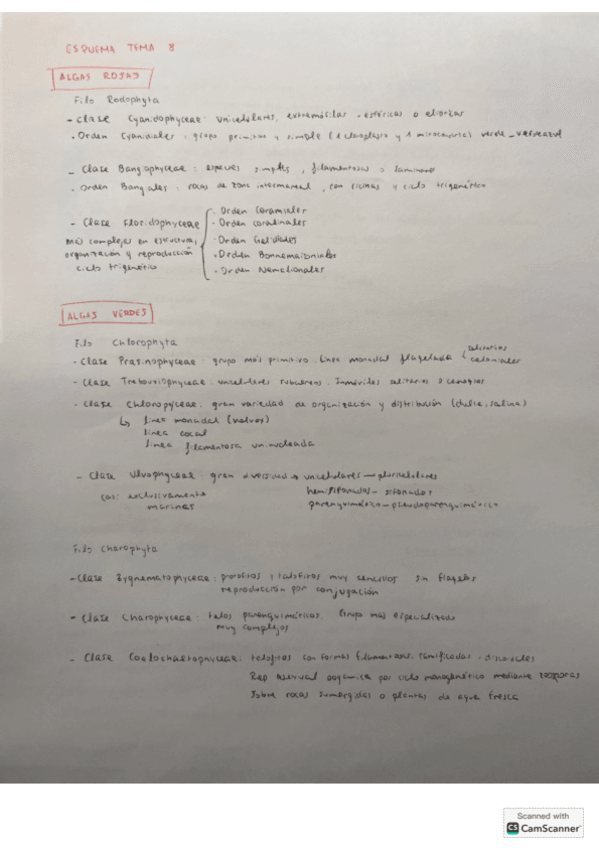 ESQUEMA TEMA 8
ALGAS ROJAS
Filo Rodophyta
- Clase Cyanidophyceae: unicelulares, extremófilas - esféricas o elípticas
- Orden Cyanidiales: grupo primitivo y simple (1 cloroplasto y 1 mitocondria) verde-verdeazul
- Clase Bangiophyceae: especies simples, filamentosas o laminares
- Orden Bangiales: rocas de zona intermareal, con y ciclo trigenético
- Clase Floridophyceae
Más complejas en estructura,
organización y reproducción
ciclo trigenético
- Orden Ceramiales
- Orden coralinales
- Orden Gelidiales
- Orden Bonnemaisoniales
- Orden Nemalionales
ALGAS VERDES
Filo Chlorophyta
- Clase Prasinophyceae: grupo más primitivo. Linea monadal flagelada solitarias
coloniales
- Clase Trebouxiophyceae: unicelulares Inmóviles solitarios o
- Clase Chloropyceae: gran variedad de organización y distribución (dulce, salina)
↳ linea monadal (volvox)
linea cocal
linea filamentosa uninucleada
- Clase Ulvophyceae: gran diversidad → unicelulares - pluricelulares
casi exclusivamente
marinas
hemisifonados - sifonados
parenquimático - pseudoparenquimático
Filo Charophyta
- Clase Zygnematophyceae: protofitos y talofitos muy sencillos sin flagelos
reproducción por conjugación
- Clase Charophyceae: talos parenquimáticos. Grupo más especializado
muy complejos
- Clase Coalochaetophyceae: talofitos con formas filamentosas, ramificadas, discoidales
Rep asexual oogamica por ciclo monogenético mediante zoosporas
Sobre rocas sumergidas o plantas de agua fresca
Scanned with
CS CamScanner